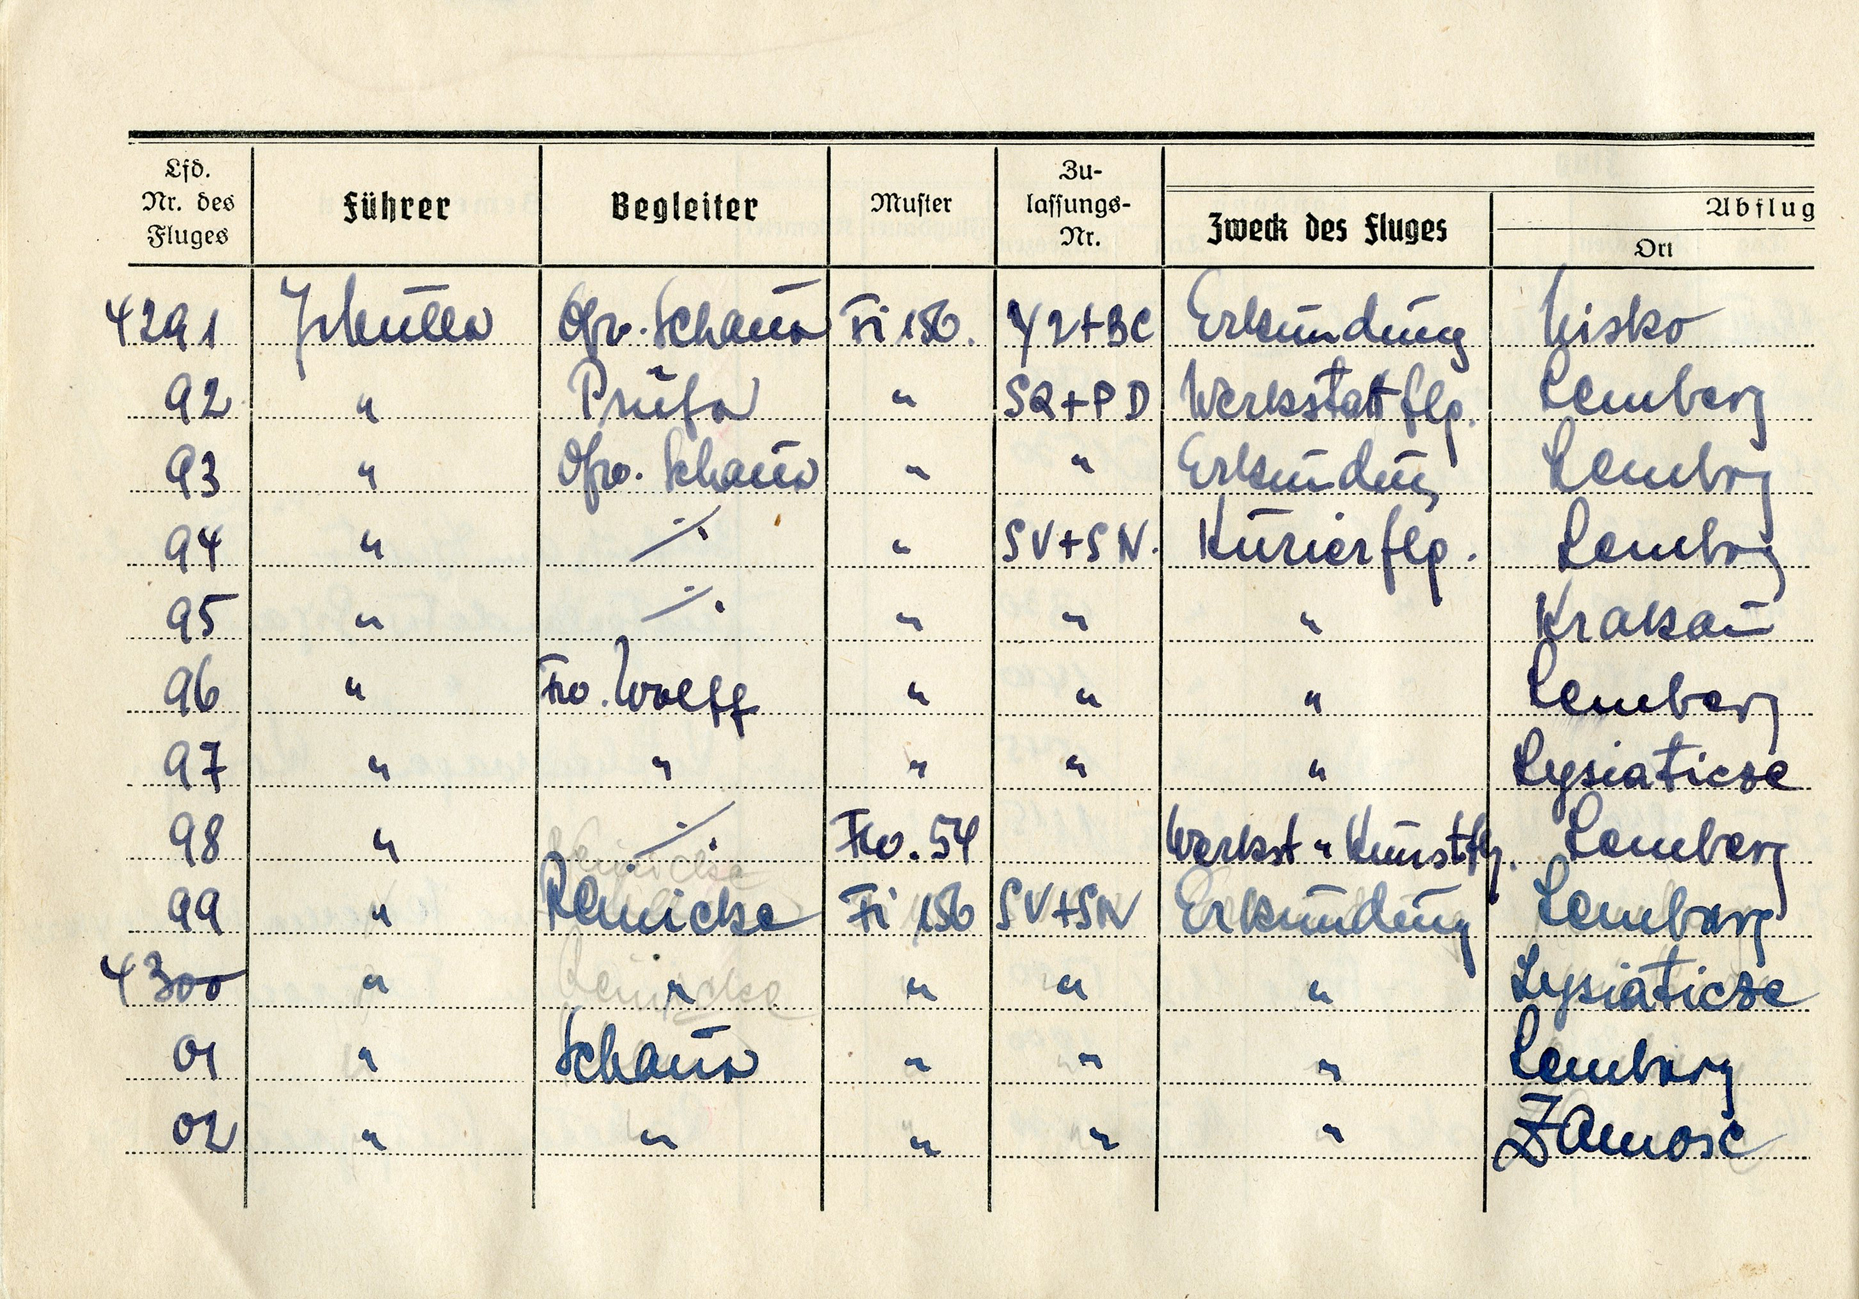 Lfd. Nr. des Fluges Führer Begleiter Muster Zulassungs-Nr. Zweck des Fluges Abflug Ort
4291 Ofw. Schauer Fi 156. Y2+BC Erkundung Nisko
92 " Prüfer " SQ+PD Werkstattflg. Lemberg
93 " Ofw. Schauer " " Erkundung Lemberg
94 " ⁒ " SV+SN. Kurierflg. Lemberg
95 " ⁒ " " " Krakau
96 " Wolff " " " Lemberg
97 " " " " " Lysiaticze
98 " ⁒ 54 Werkst u Kunstflg. Lemberg
99 " Reinicke Fi 156 SV+SN Erkundung Lemberg
4300 " " " " " Lysiaticze
01 " Schauer " " " Lemberg
02 " " " " " Zamosc